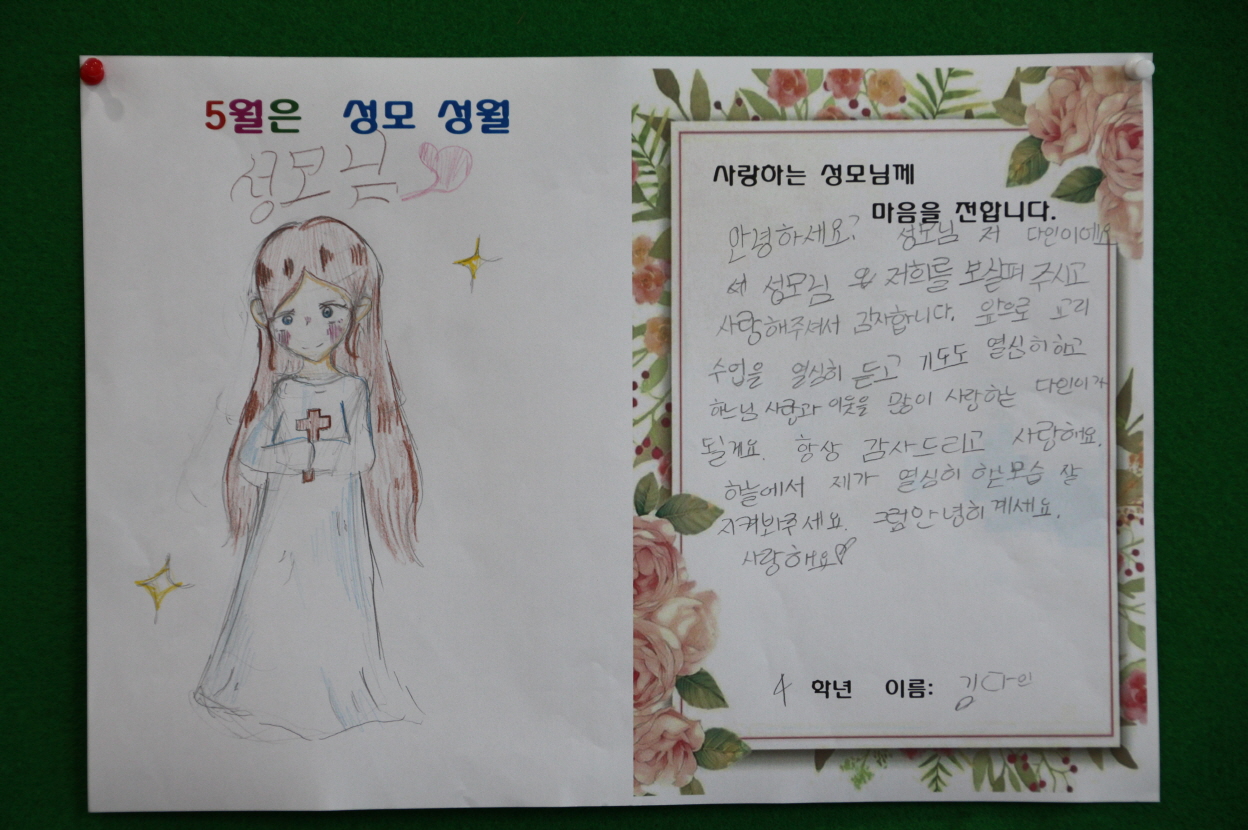 5월은 성모 성월
성모님
사랑하는 성모님께
마음을 전합니다.
안녕하세요? 성모님 저 다인이에요
성모님 저희를 보살펴 주시고
사랑해주셔서 감사합니다. 앞으로 교리
수업을 열심히 듣고 기도도 열심히 하고
하느님 사랑과 이웃을 많이 사랑하는 다인이가
될게요. 항상 감사드리고 사랑해요.
하늘에서 제가 열심히 하는 모습 잘
지켜봐주세요. 그럼 안녕히 계세요.
사랑해요
4 학년 이름: 김다인